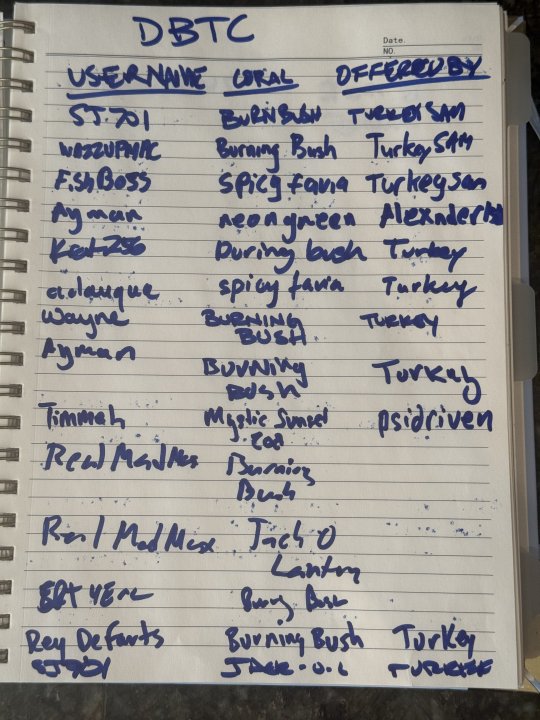 DBTC
Date.
NO.
USERNAME CORAL OFFERED BY
SJ701 BURNBUSH TURKEYSAM
WAZZUPMAC Burning Bush TurkeySAM
FishBoss Spicy favia Turkeysam
Ayman neon green
Burning bush Turkey
spicy favia Turkey
Wayne BURNING TURKEY
BUSH
Ayman
Burning Turkey
BUSH
Timmah Mystic Sunset psidriven
zoa
Real MadMax Burning
Bush
Real MadMax Jack O
Lantern
Bush
Rey Defarts Burning Bush Turkey
SJ701 JACK-O-L TURKEY